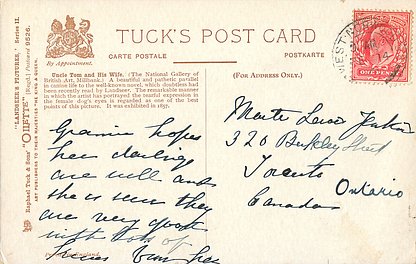 TUCK'S POST CARD
CARTE POSTALE
POSTKARTE
By Appointment.
(FOR ADDRESS ONLY.)
Uncle Tom and His Wife. (The National Gallery of
British Art, Millbank.) A beautiful and pathetic parallel
in canine life to the well-known novel, which doubtless had
been recently read by Landseer. The remarkable manner
in which the painter has portrayed the sealed expression in
the female dog's eyes is regarded as one of the best
points of this picture. It was exhibited in 1857.
"LANDSEER'S PICTURES." Series II.
Raphael Tuck & Sons' "OILETTE" (Regd.) Postcard 9526.
ART PUBLISHERS TO THEIR MAJESTIES THE KING & QUEEN.
Grannie hopes
her darlings
are well and
she is sure they
are very good
with lots of
kisses from
320 Berkeley Street
Toronto
Ontario
Canada
ONE PENNY